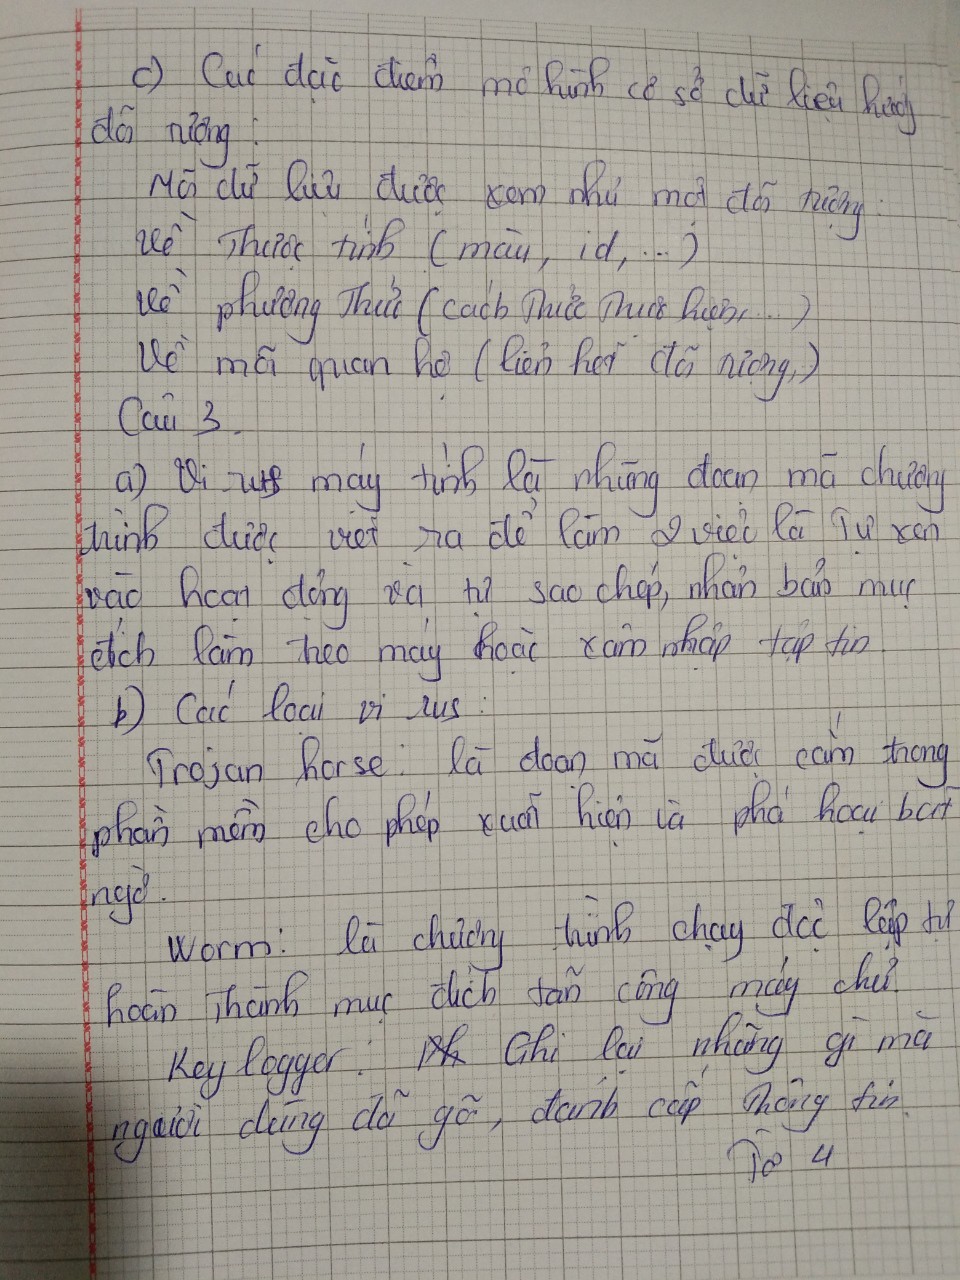 c) Các đặc điểm mô hình cơ sở dữ liệu hướng
đối tượng:
Mỗi dữ liệu được xem như một đối tượng:
Về Thuộc tính (màu, id, ...)
Về phương Thức (cách Thức Thực hiện, ...)
Về mối quan hệ (liên hệ đối tượng,)
Câu 3.
a) Vi rus máy tính là những đoạn mã chương
trình được viết ra để làm 2 việc là Tự xen
vào hoạt động và tự sao chép, nhân bản mục
đích làm theo máy hoặc xâm nhập tập tin
b) Các loại vi rus:
Trojan horse: là đoạn mã được cắm trong
phần mềm cho phép xuất hiện và phá hoại bất
ngờ.
Worm: là chương trình chạy độc lập tự
hoàn Thành mục đích tấn công máy chủ.
Key logger: Ghi lại những gì mà
người dùng đã gõ, đánh cắp Thông tin.
Tờ 4